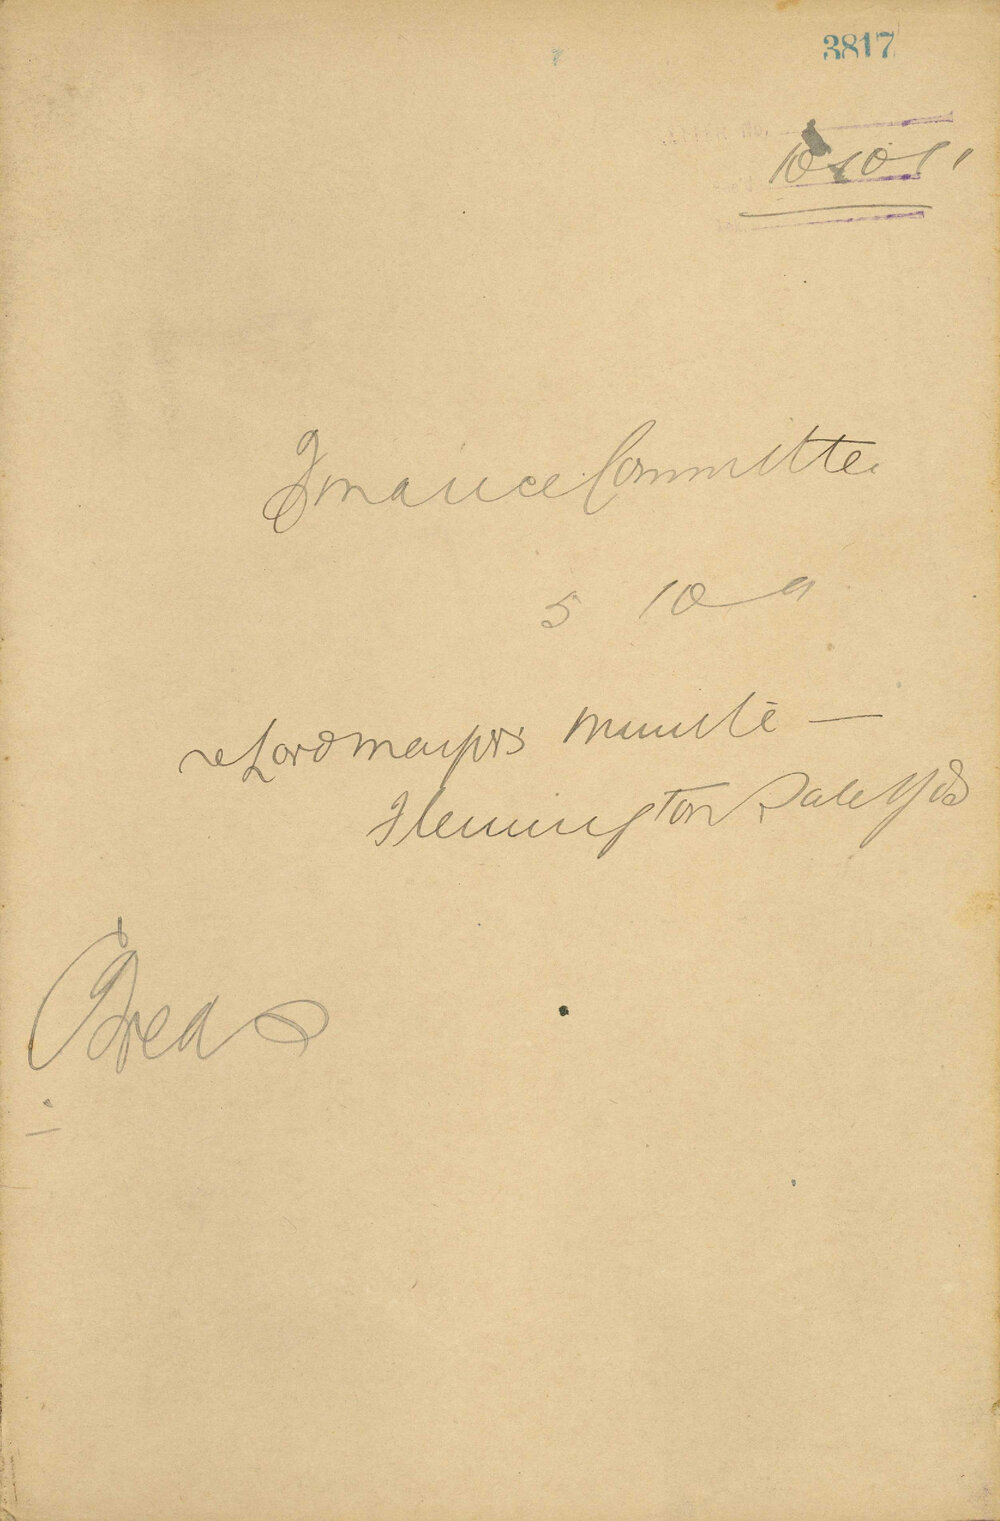 3817
Finance Committee
5 10 9
re Lord Mayor's Minute —
Flemington Sale Yds